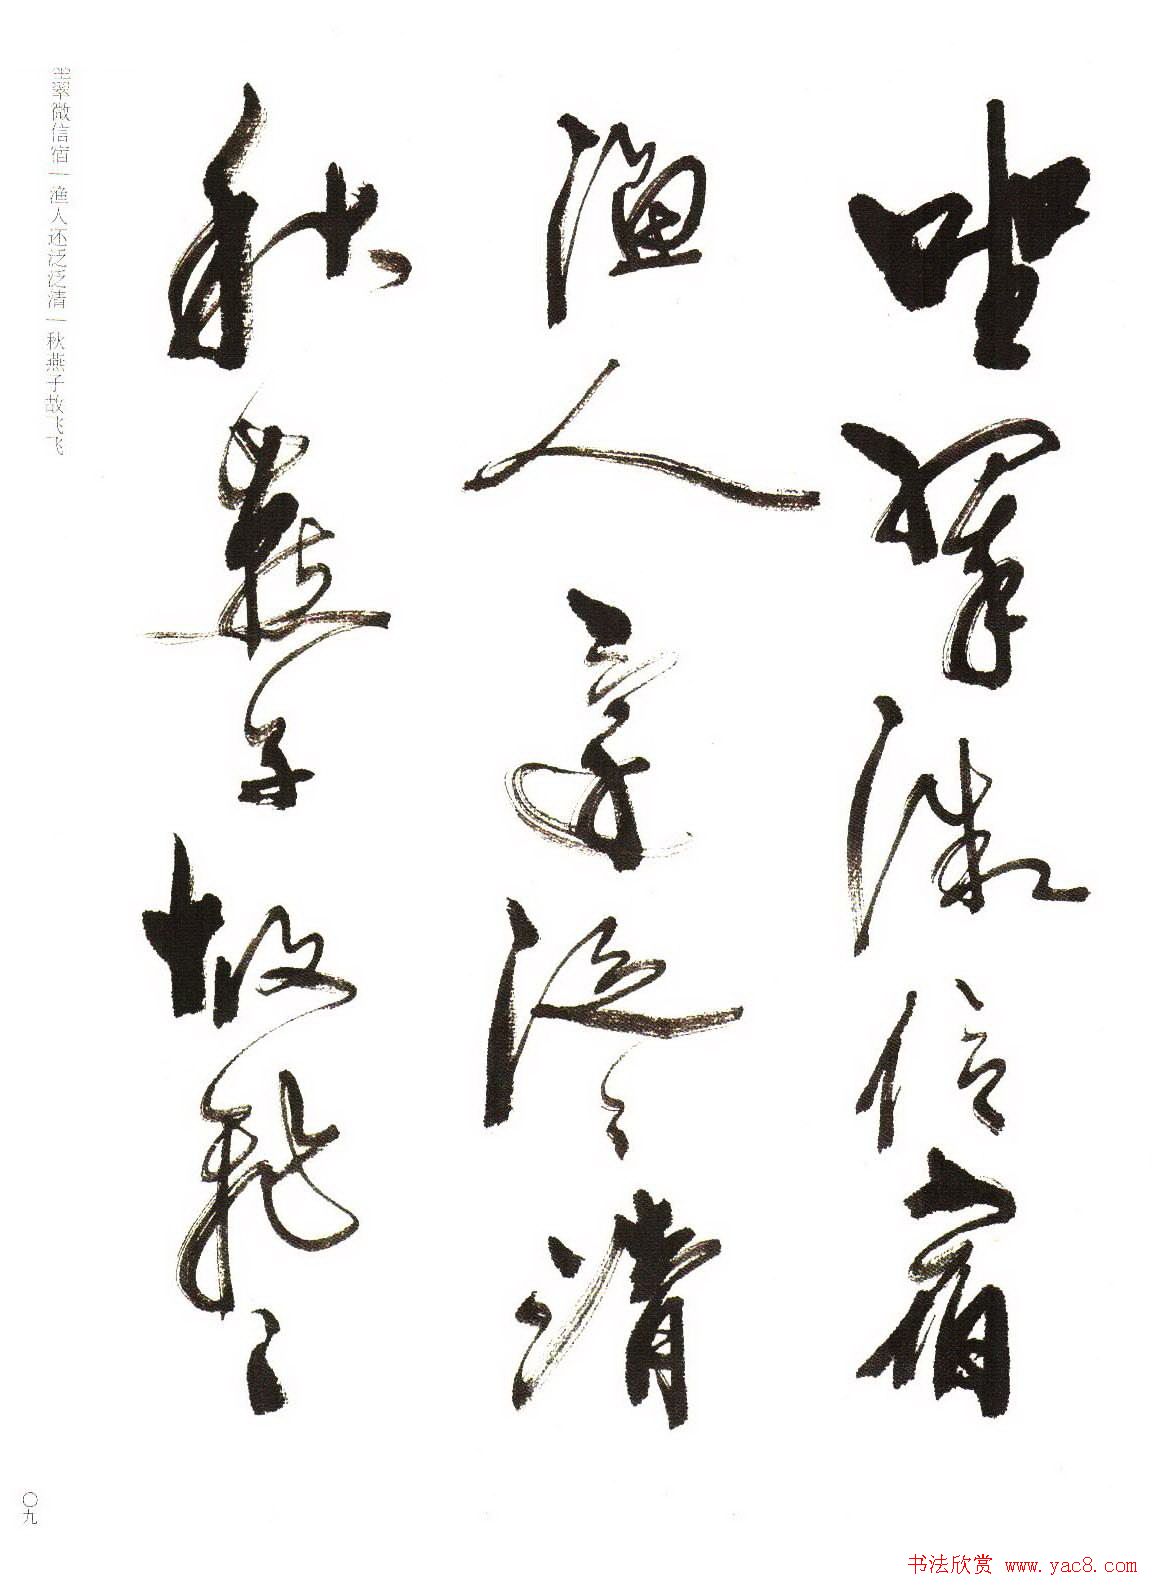 坐翠微信宿
渔人还泛〻清
秋燕子故飞〻
坐翠微信宿|渔人还泛泛清|秋燕子故飞飞
〇九
书法欣赏 www.yac8.com